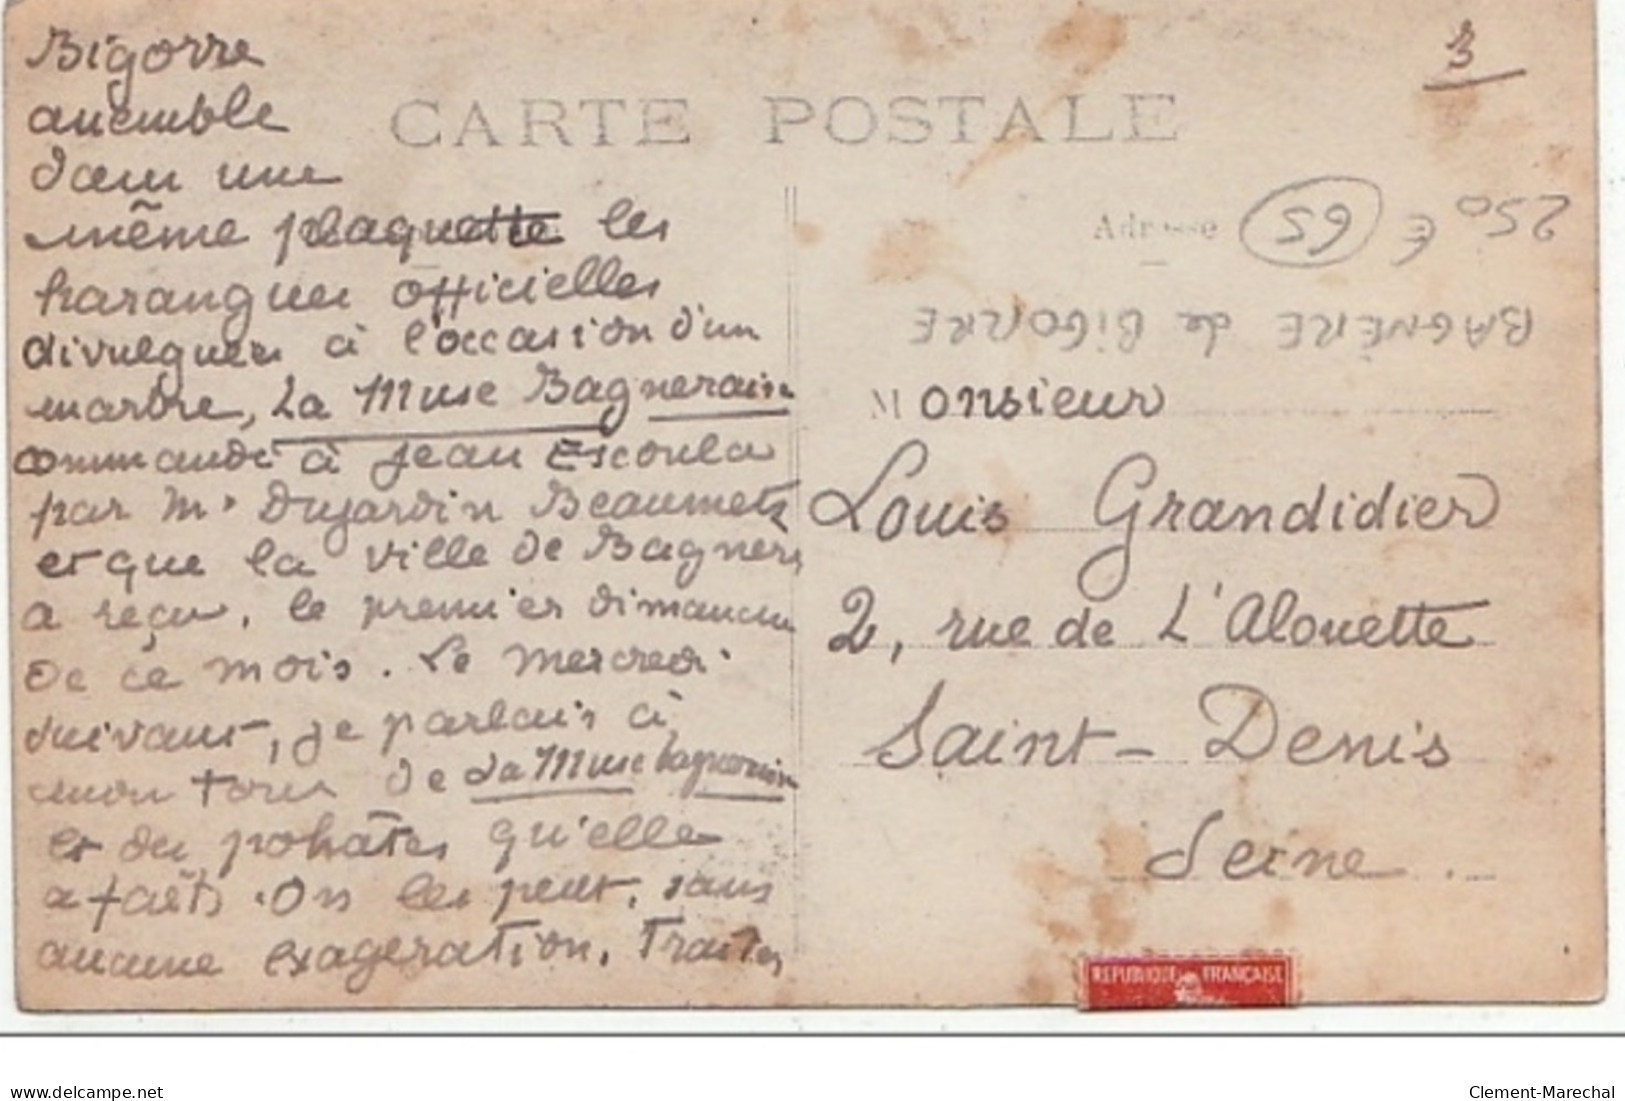 Bigorre
assemble
dans une
même plaquette les
harangues officielles
divulguées à l'occasion d'un
marbre, La Muse Bagneraise
commandé à Jean Escoula
par Mr Dujardin Beaumetz
et que la ville de Bagnères
a reçu, le premier dimanche
de ce mois. Le mercredi
suivant, je parlais à
mon tour de La Muse bagneraise
et des
qu'elle
a faits. On les peut, sans
aucune exageration, Traiter
CARTE POSTALE
3
Adresse
65
250 €
BAGNÈRE de BIGORRE
Monsieur
Louis Grandidier
2, rue de L'Alouette
Saint-Denis
Seine
REPUBLIQUE FRANÇAISE
www.delcampe.net
Clement-Marechal